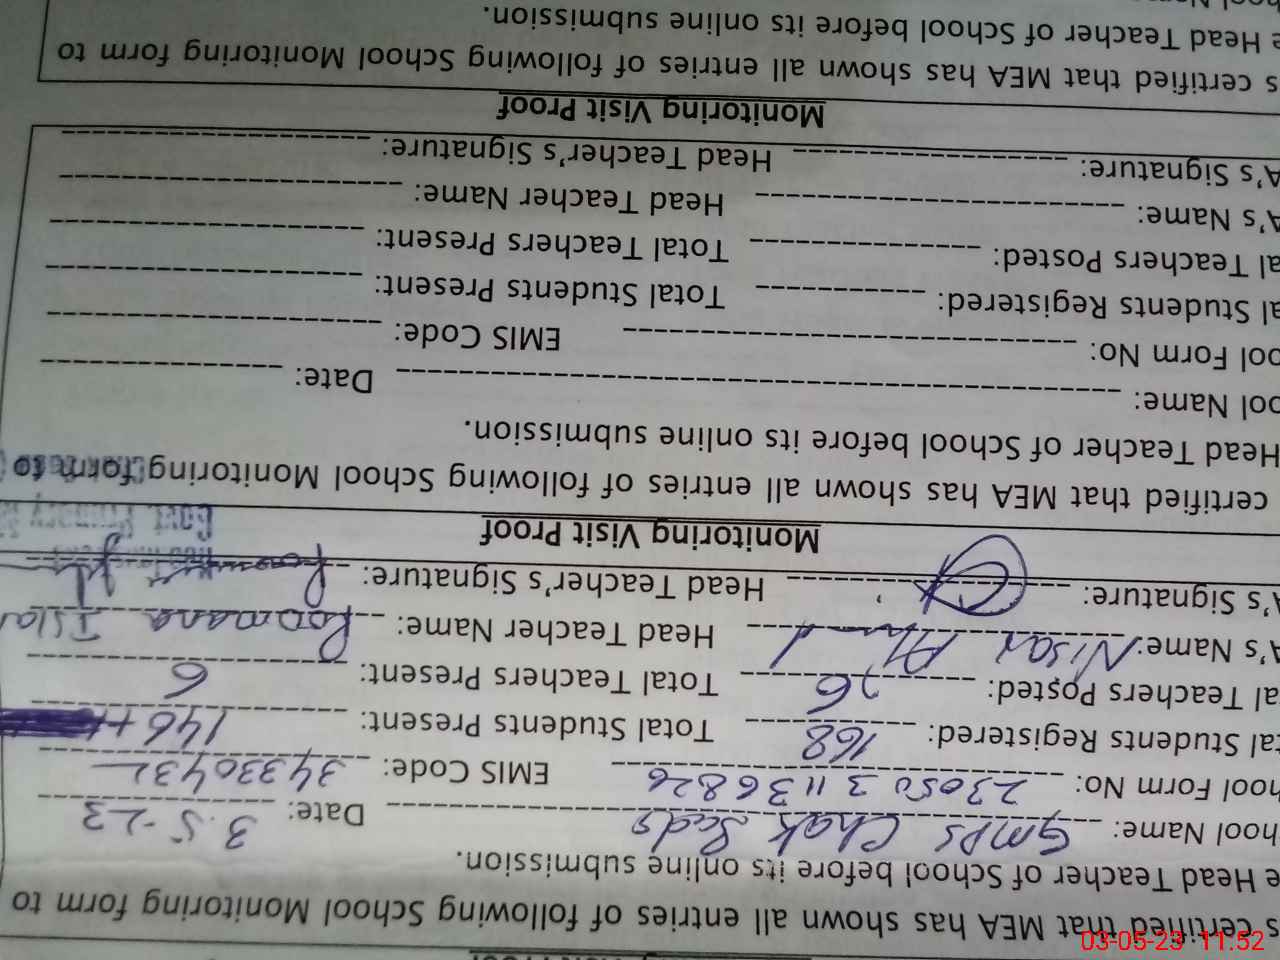 s certified that MEA has shown all entries of following School Monitoring form to
e Head Teacher of School before its online submission.
hool Name: GMPS Chak Date: 3.5-23
hool Form No: 2305031136826 EMIS Code: 34330432
tal Students Registered: 168 Total Students Present: 146
al Teachers Posted: 6 Total Teachers Present: 6
A's Name: Nisar Ahmad Head Teacher Name: Roomana Islam
A's Signature: Head Teacher's Signature:
Monitoring Visit Proof
certified that MEA has shown all entries of following School Monitoring form to
Head Teacher of School before its online submission.
ool Name: Date:
ool Form No: EMIS Code:
al Students Registered: Total Students Present:
al Teachers Posted: Total Teachers Present:
A's Name: Head Teacher Name:
A's Signature: Head Teacher's Signature:
Monitoring Visit Proof
s certified that MEA has shown all entries of following School Monitoring form to
e Head Teacher of School before its online submission.
03-05-23 11:52